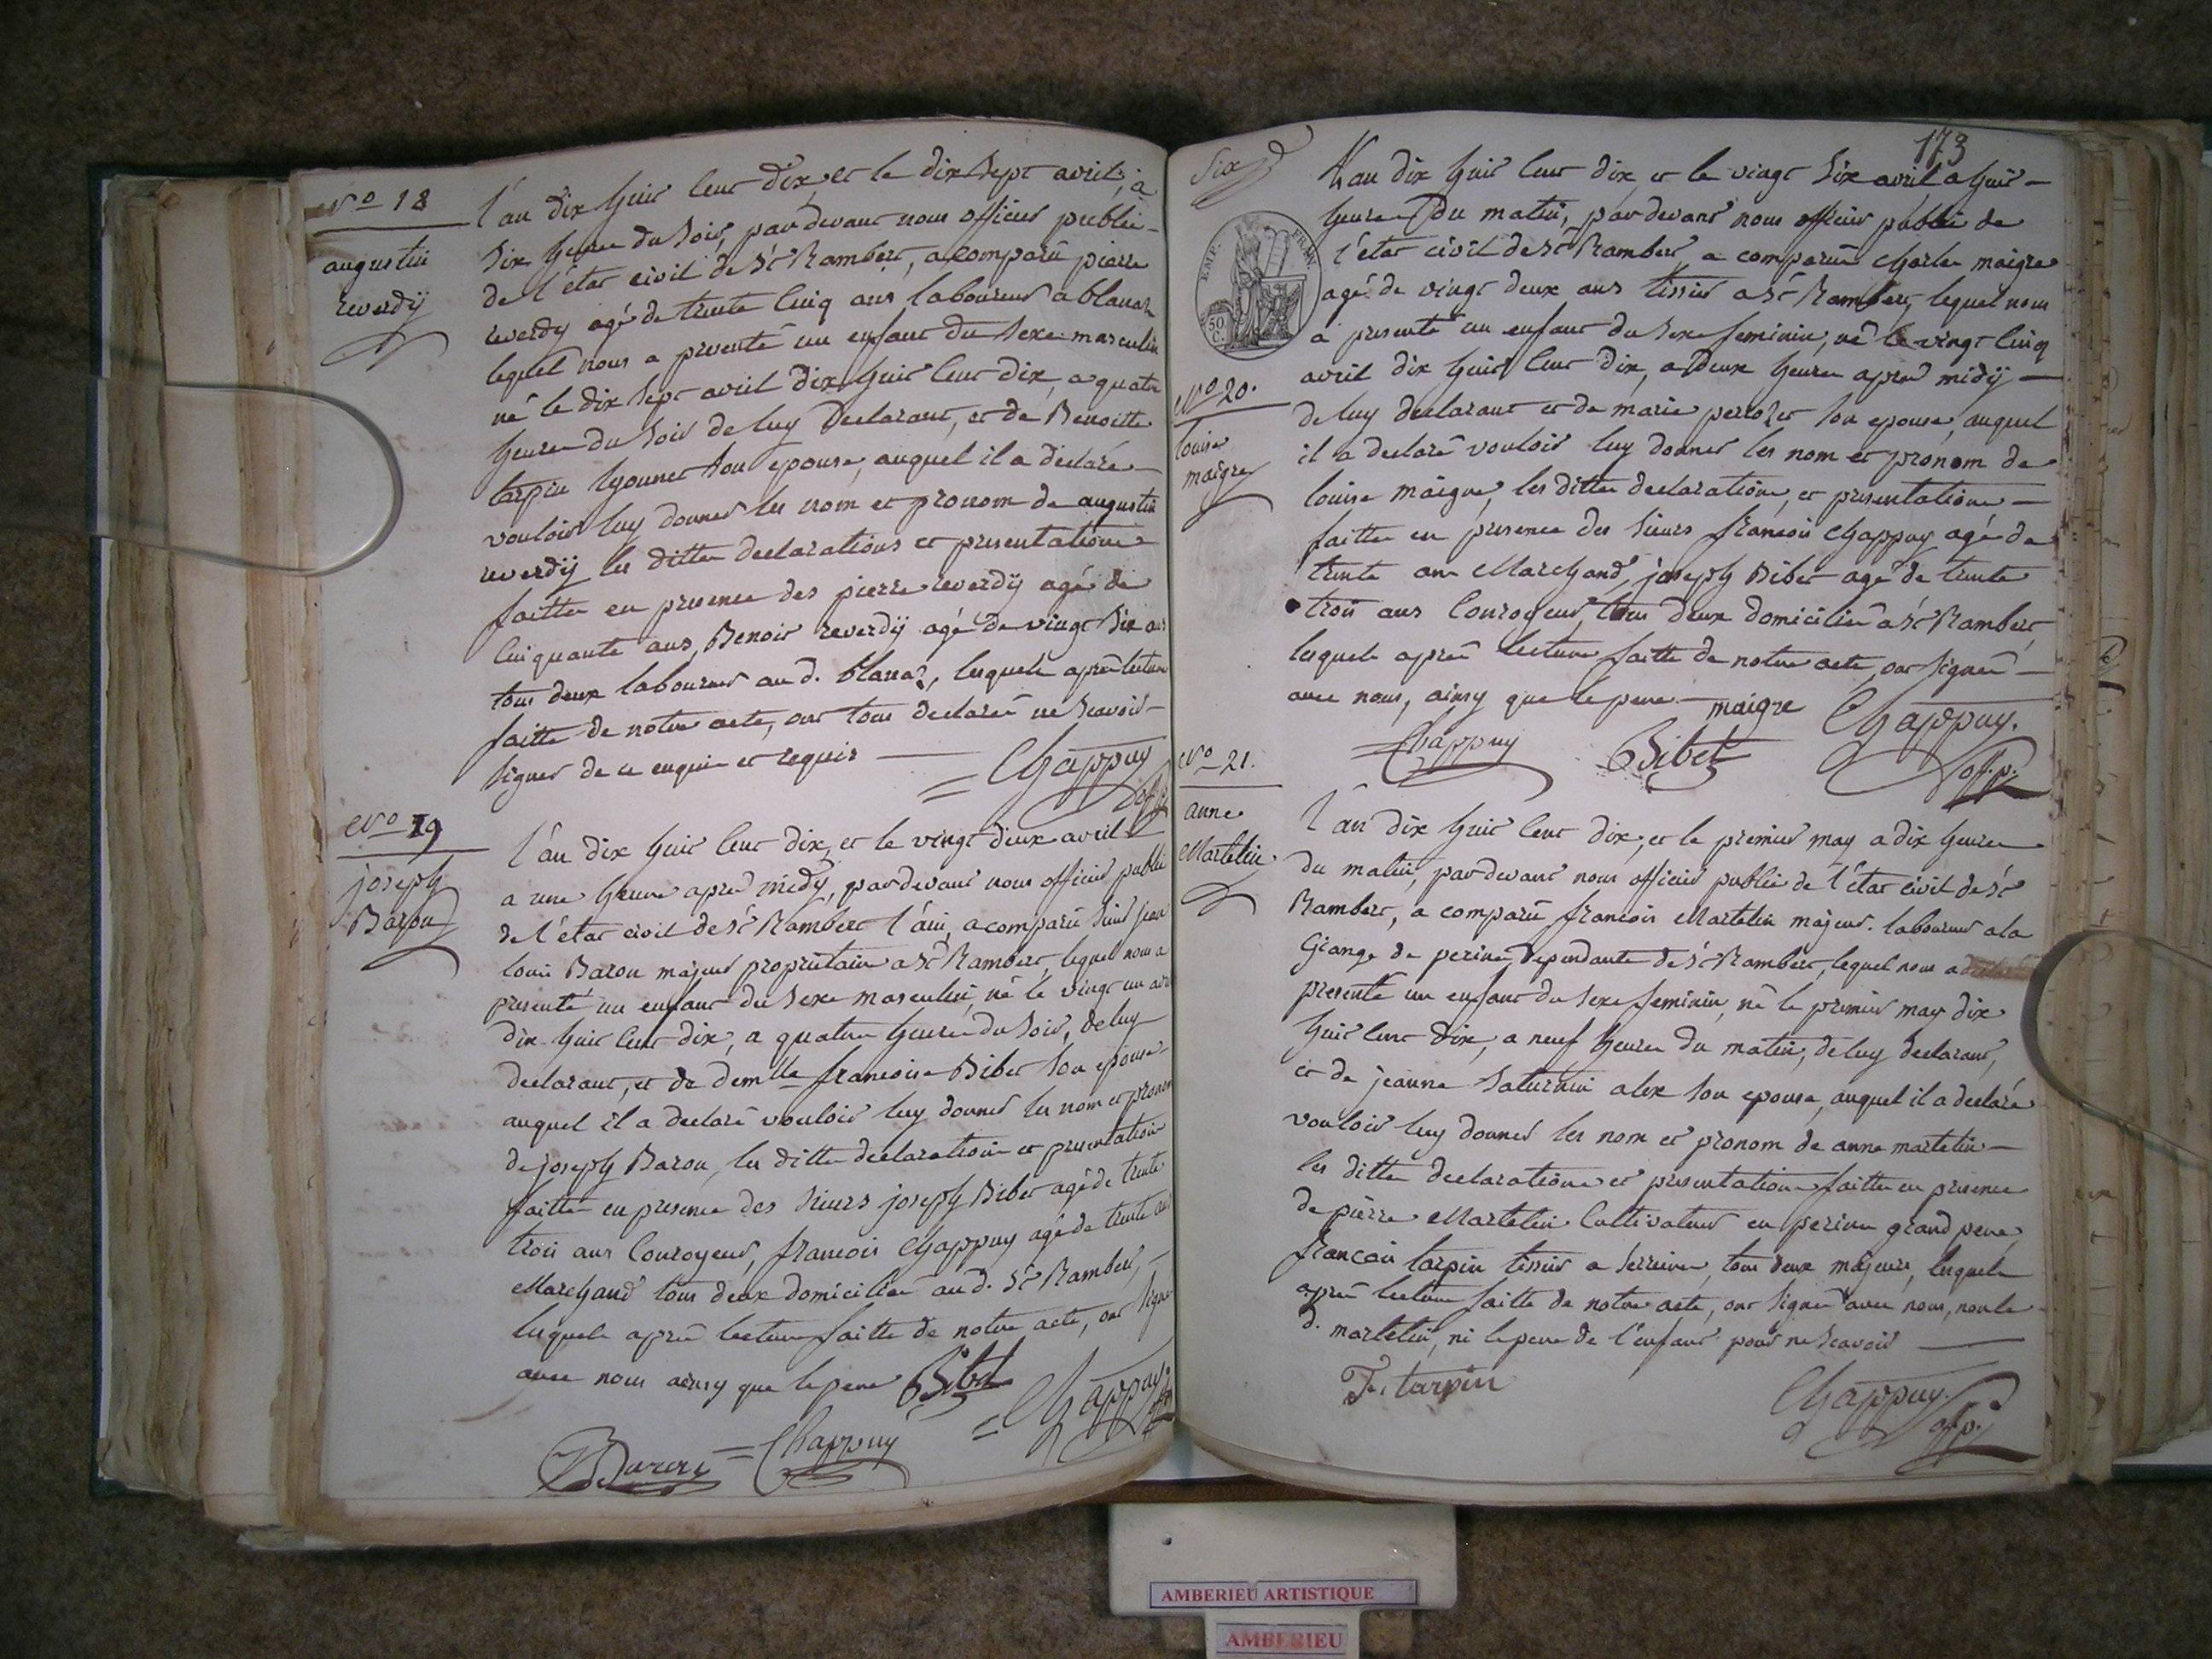 No 18
augustin
reverdÿ
l'an dix huit cent dix, et le dix sept avril, a
six heures du soir, pardevant nous officier public
de l'état civil de St Rambert, a comparu pierre
reverdy agé de trente cinq ans laboureur a blanaz
lequel nous a presenté un enfant du sexe masculin
né le dix sept avril dix huit cent dix, a quatre
heures du soir de luy declarant, et de Benoitte
tarpin lyonnet son epouse, auquel il a declaré
vouloir luy donner les nom et pronom de augustin
reverdÿ les dittes declarations et presentations
faittes en presence des pierre reverdÿ agé de
cinquante ans, Benoit reverdÿ agé de vingt six ans
tous deux laboureurs au d. blanaz, lesquels apres lecture
faitte de notre acte, ont tous declarés ne scavoir
signer de ce enquis et requis
Chappuy
off. p.
No 19
joseph
Baron
l'an dix huit cent dix, et le vingt deux avril
a une heure apres midÿ, pardevant nous officier public
de l'état civil de St Rambert l'ain, a comparu sieur jean
louis Baron majeur proprietaire a St Rambert, lequel nous a
presenté un enfant du sexe masculin, né le vingt un avril
dix huit cent dix, a quatre heures du soir, de luy
declarant, et de demlle francoise Bibet son epouse
auquel il a declaré vouloir luy donner les nom et pronom
de joseph Baron, les dittes declarations et presentations
faittes en presence des sieurs joseph Bibet agé de trente
trois ans Couroyeur, francois Chappuy agé de trente ans
Marchand tous deux domiciliés au d. St Rambert,
lesquels apres lecture faitte de notre acte, ont signés
avec nous ainsy que le pere Bibet
Chappuy
Baron Chappuy
173
Six
EMP. FRAN.
50 C.
No 20.
louise
maigre
L'an dix huit cent dix, et le vingt six avril a huit
heures du matin, pardevant nous officier public de
l'état civil de St Rambert, a comparu charles maigre
agé de vingt deux ans tissier a St Rambert, lequel nous
a presenté un enfant du sexe feminin, né le vingt cinq
avril dix huit cent dix, a deux heures apres midÿ
de luy declarant et de marie perrozet son epouse, auquel
il a declaré vouloir luy donner les nom et pronom de
louise maigre, les dittes declarations, et presentations
faittes en presence des sieurs francois Chappuy agé de
trente ans Marchand, joseph Bibet agé de trente
trois ans Couroyeur, tous deux domiciliés a St Rambert,
lesquels apres lecture faitte de notre acte, ont signés
avec nous, ainsy que le pere maigre Chappuy.
Chappuy Bibet off. p.
No 21.
anne
Martelin
l'an dix huit cent dix, et le premier may a dix heures
du matin, pardevant nous officier public de l'état civil de St
Rambert, a comparu, francois Martelin majeur. laboureur a la
Grange de perine, dependante de St Rambert, lequel nous a
presenté un enfant du sexe feminin, né le premier may dix
huit cent dix, a neuf heures du matin, de luy declarant,
et de jeanne saturnin alex son epouse, auquel il a declaré
vouloir luy donner les nom et pronom de anne martelin
les dittes declarations et presentations faittes en presence
de pierre Martelin Cultivateur en perine grand pere,
francois tarpin tissier a serrieres, tous deux majeurs, lesquels
apres lecture faitte de notre acte, ont signés avec nous, non le
d. martelin, ni le pere de l'enfant pour ne scavoir
Fs. tarpin
Chappuy.
off. p.
AMBERIEU ARTISTIQUE
AMBERIEU